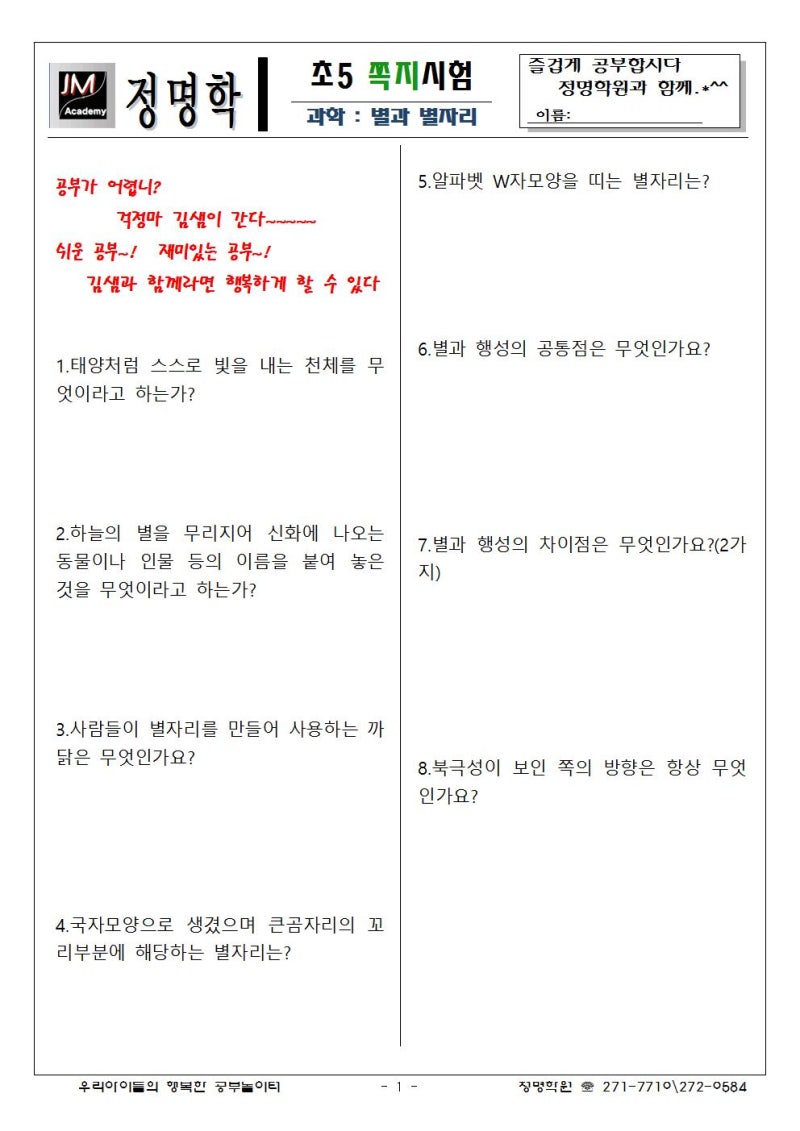 JM
Academy
정명학
초5 쪽지시험
과학 : 별과 별자리
즐겁게 공부합시다
정명학원과 함께.*^^
이름:
공부가 어렵니?
걱정마 김샘이 간다~~~~~
쉬운 공부~! 재미있는 공부~!
김샘과 함께라면 행복하게 할 수 있다
1.태양처럼 스스로 빛을 내는 천체를 무
엇이라고 하는가?
2.하늘의 별을 무리지어 신화에 나오는
동물이나 인물 등의 이름을 붙여 놓은
것을 무엇이라고 하는가?
3.사람들이 별자리를 만들어 사용하는 까
닭은 무엇인가요?
4.국자모양으로 생겼으며 큰곰자리의 꼬
리부분에 해당하는 별자리는?
5.알파벳 W자모양을 띠는 별자리는?
6.별과 행성의 공통점은 무엇인가요?
7.별과 행성의 차이점은 무엇인가요?(2가
지)
8.북극성이 보인 쪽의 방향은 항상 무엇
인가요?
우리아이들의 행복한 공부놀이터
- 1 -
정명학원 ☏ 271-7710\272-0584